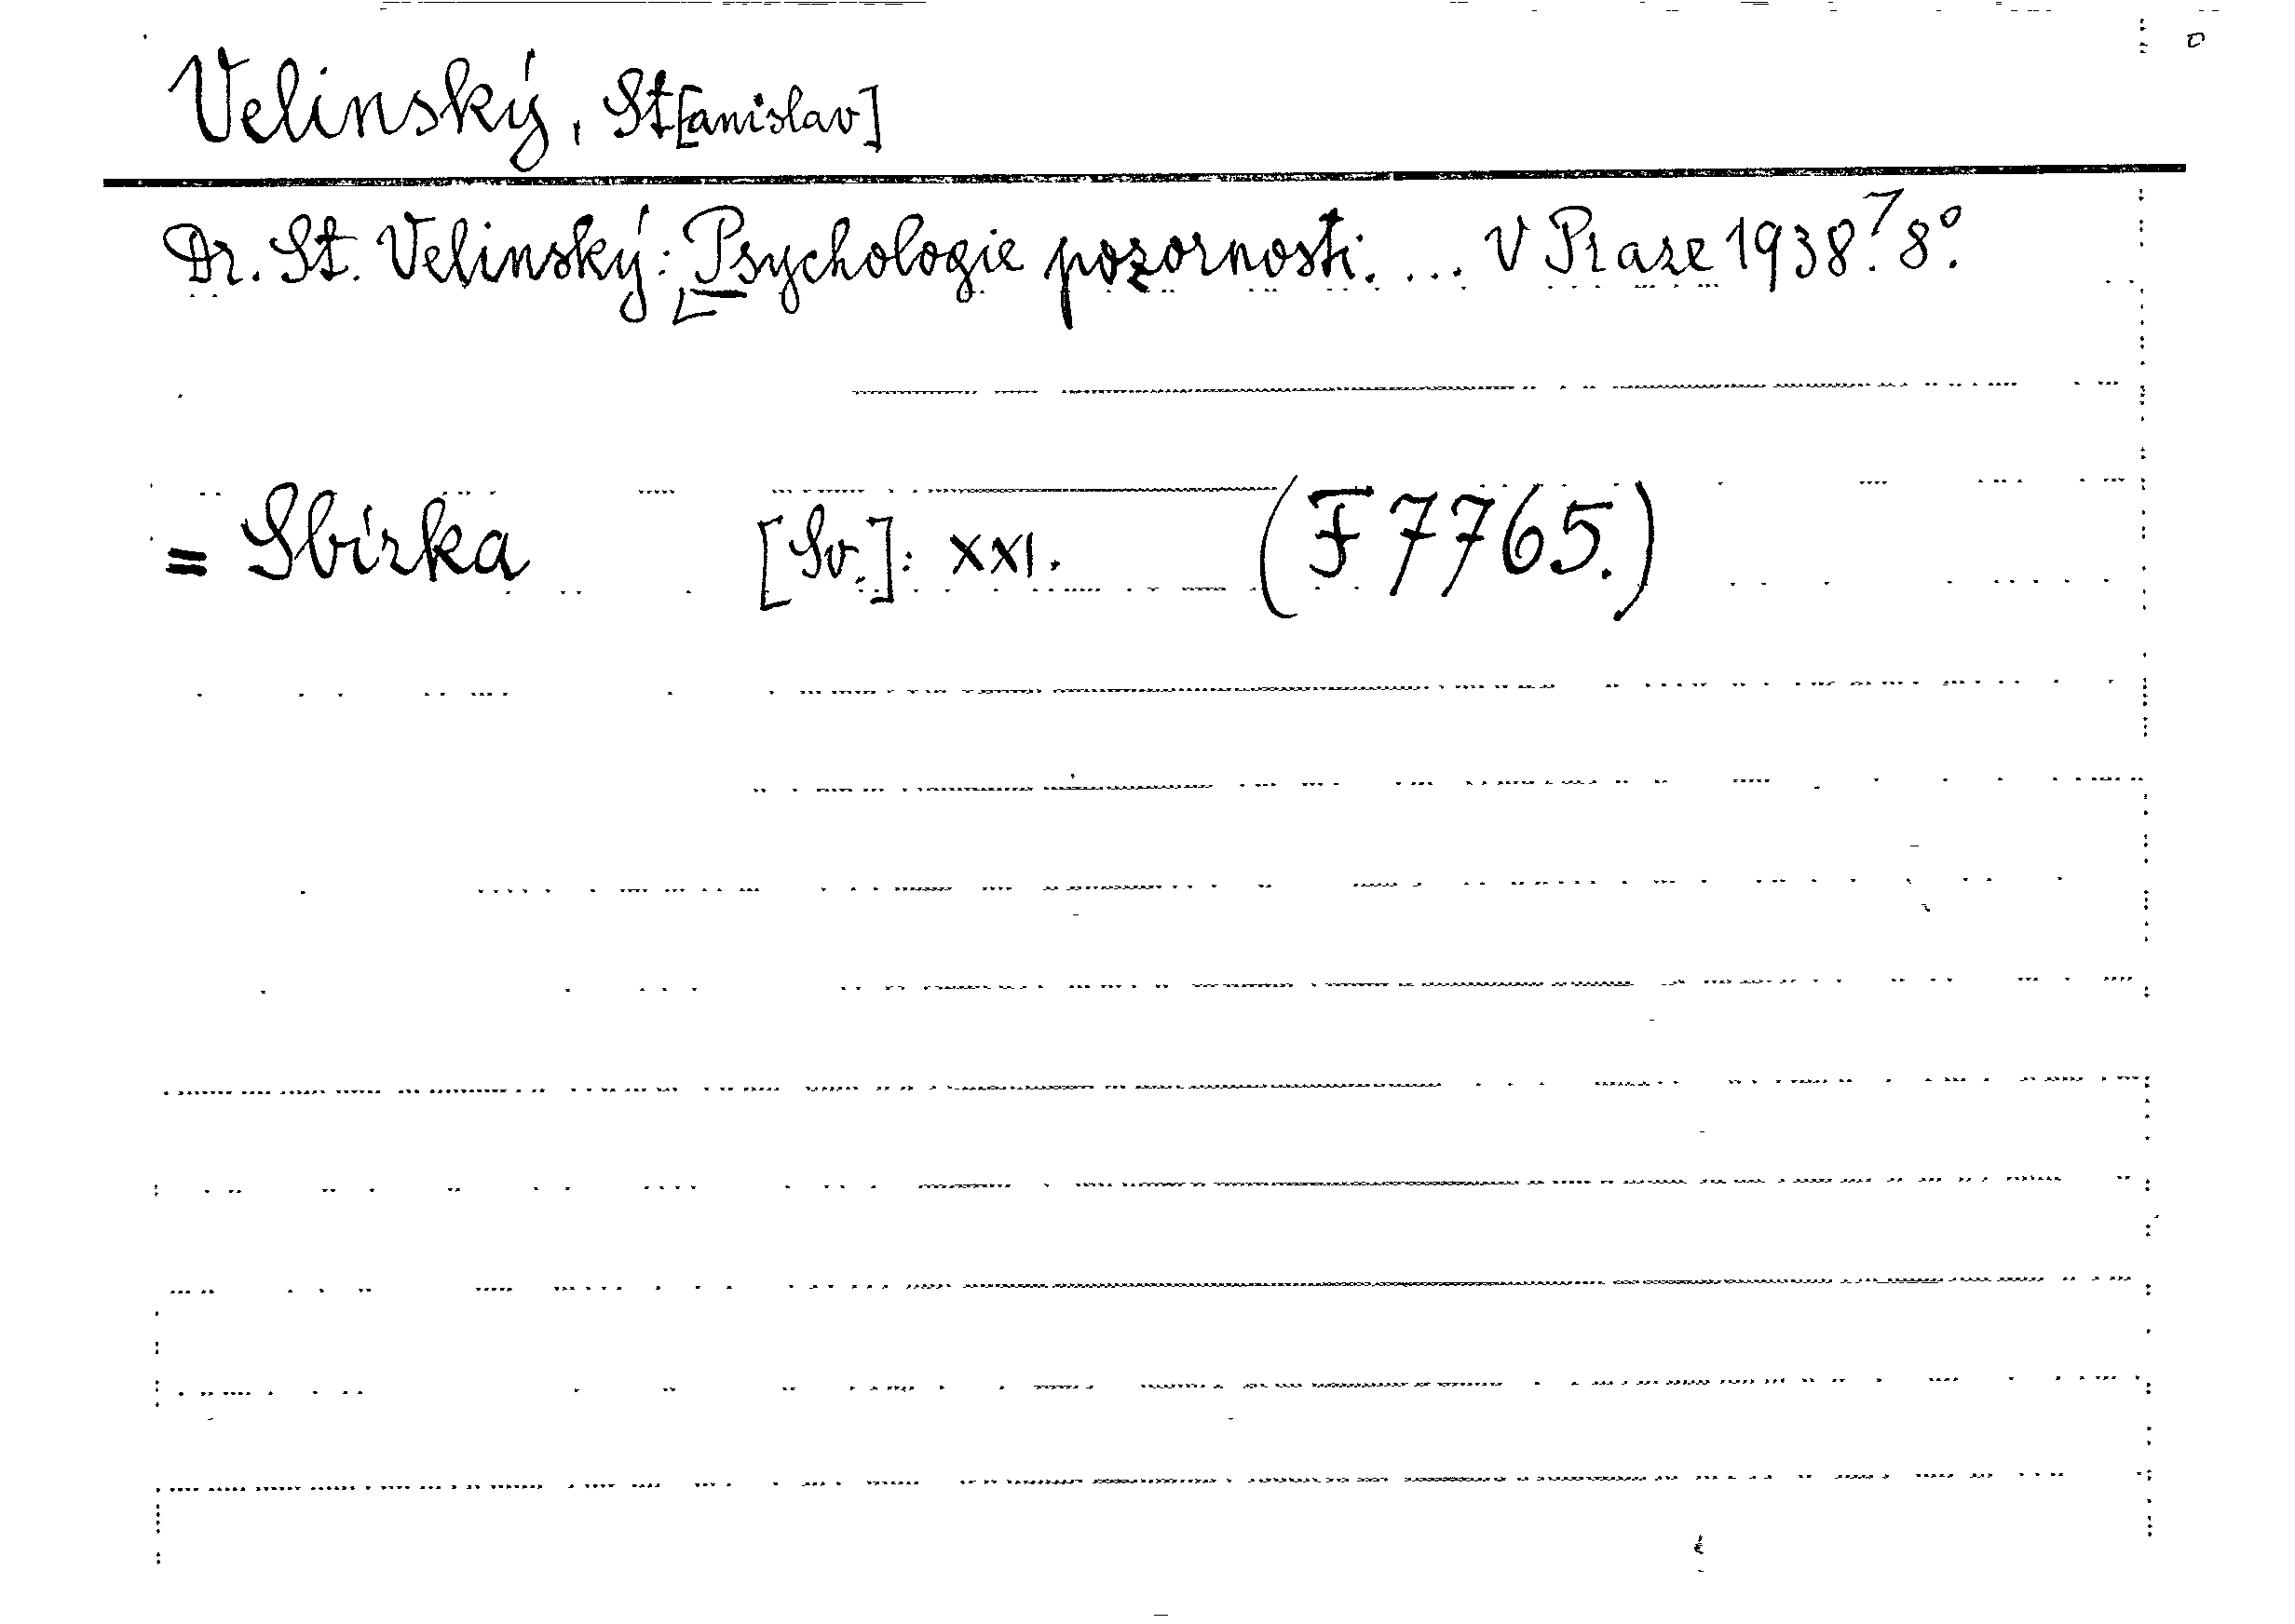 Velinský, St[anislav]
Dr. St. Velinský: Psychologie pozornosti. ... V Praze 1938. 8°.
= Sbírka [Sv.]: XXI. (F 7765.)